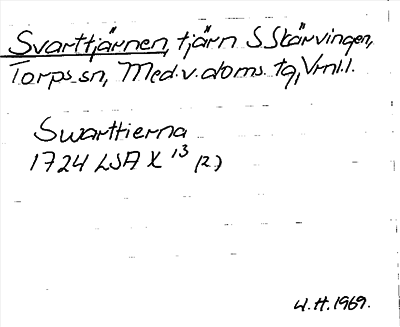 Svarttjärnen, tjärn S Skärvingen,
Torps sn, Med.v.doms. tg, Vrnl.l.
Swarttierna
1724 LSA X 13 (2)
W.H. 1969.